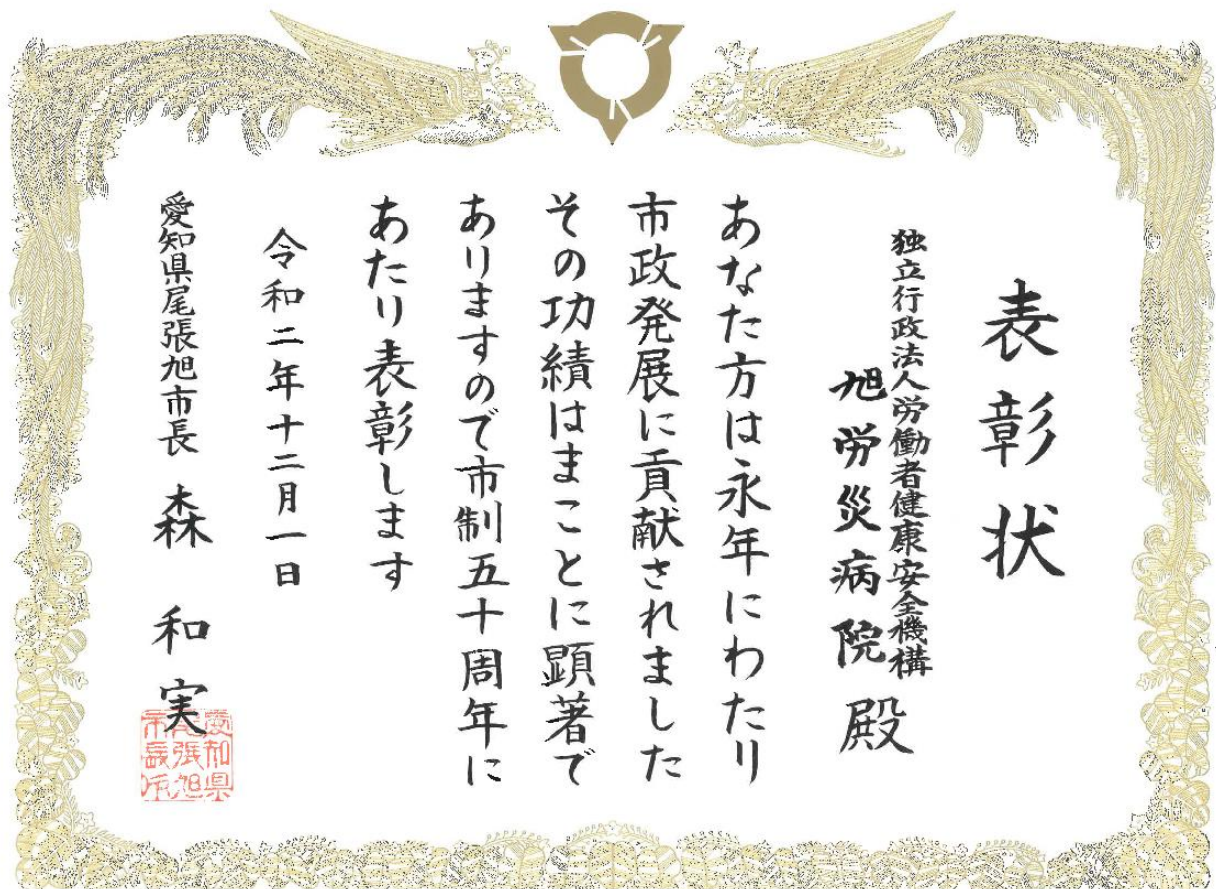 表彰状
独立行政法人労働者健康安全機構
旭労災病院殿
あなた方は永年にわたり
市政発展に貢献されました
その功績はまことに顕著で
ありますので市制五十周年に
あたり表彰します
令和二年十二月一日
愛知県尾張旭市長 森 和実
愛知県
尾張旭
市長印